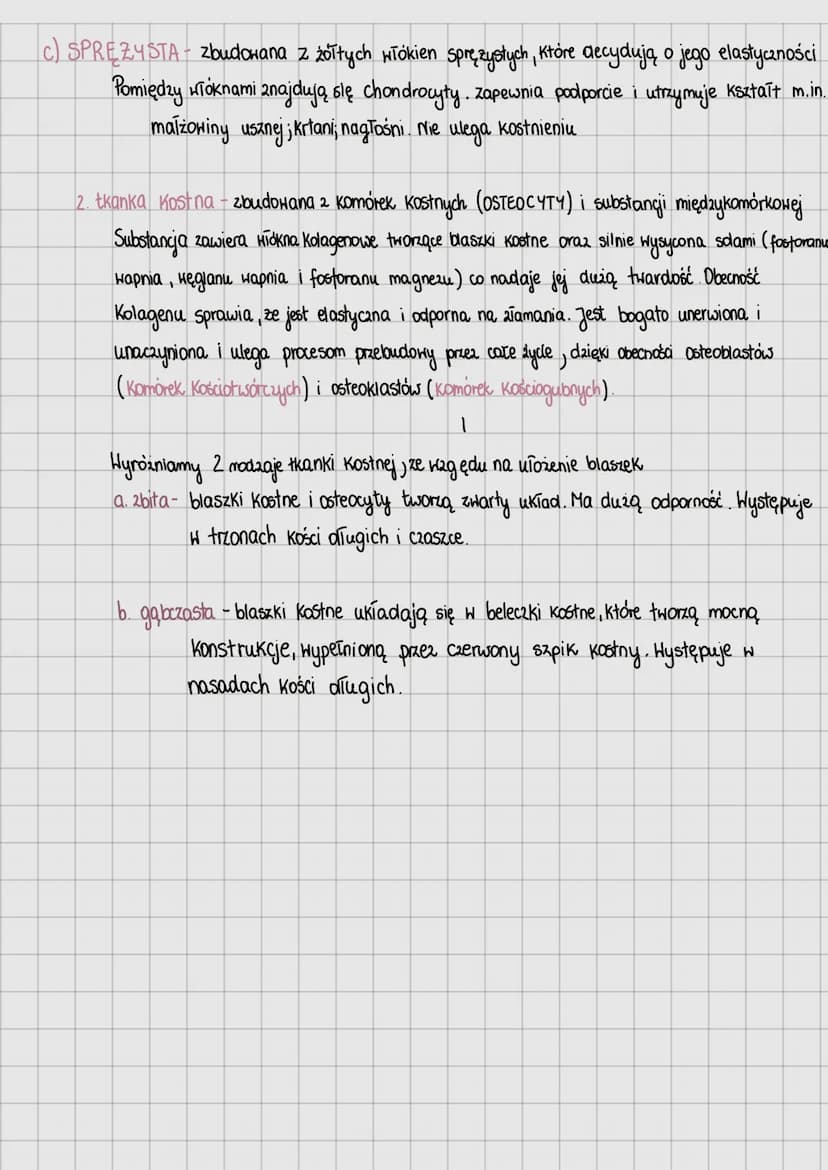 c) SPRĘŻYSTA - zbudowana z żółtych włókien sprężystych, które decydują o jego elastyczności
Pomiędzy włóknami znajdują się chondrocyty. zapewnia podporcie i utrzymuje kształt m.in.
małżowiny usznej; krtani; nagłośni. Nie ulega kostnieniu
2. tkanka kostna - zbudowana z komórek kostnych (OSTEOCYTY) i substancji międzykomórkowej
Substancja zawiera włókna kolagenowe tworzące blaszki kostne oraz silnie wysycona solami (fosforanu
wapnia, węglanu wapnia i fosforanu magnezu) co nadaje jej dużą twardość. Obecność
kolagenu sprawia, że jest elastyczna i odporna na złamania. Jest bogato unerwiona i
unaczyniona i ulega procesom przebudowy przez całe życie, dzięki obecności osteoblastów
(komórek kościotwórczych) i osteoklastów (komórek kościogubnych).
Wyróżniamy 2 rodzaje tkanki kostnej, ze wzgędu na ułożenie blaszek
a. zbita - blaszki kostne i osteocyty tworzą zwarty układ. Ma dużą odporność. Występuje
w trzonach kości długich i czaszce.
b. gąbczasta - blaszki kostne układają się w beleczki kostne, które tworzą mocną
konstrukcje, wypełnioną przez czerwony szpik kostny. Występuje w
nasadach kości długich.